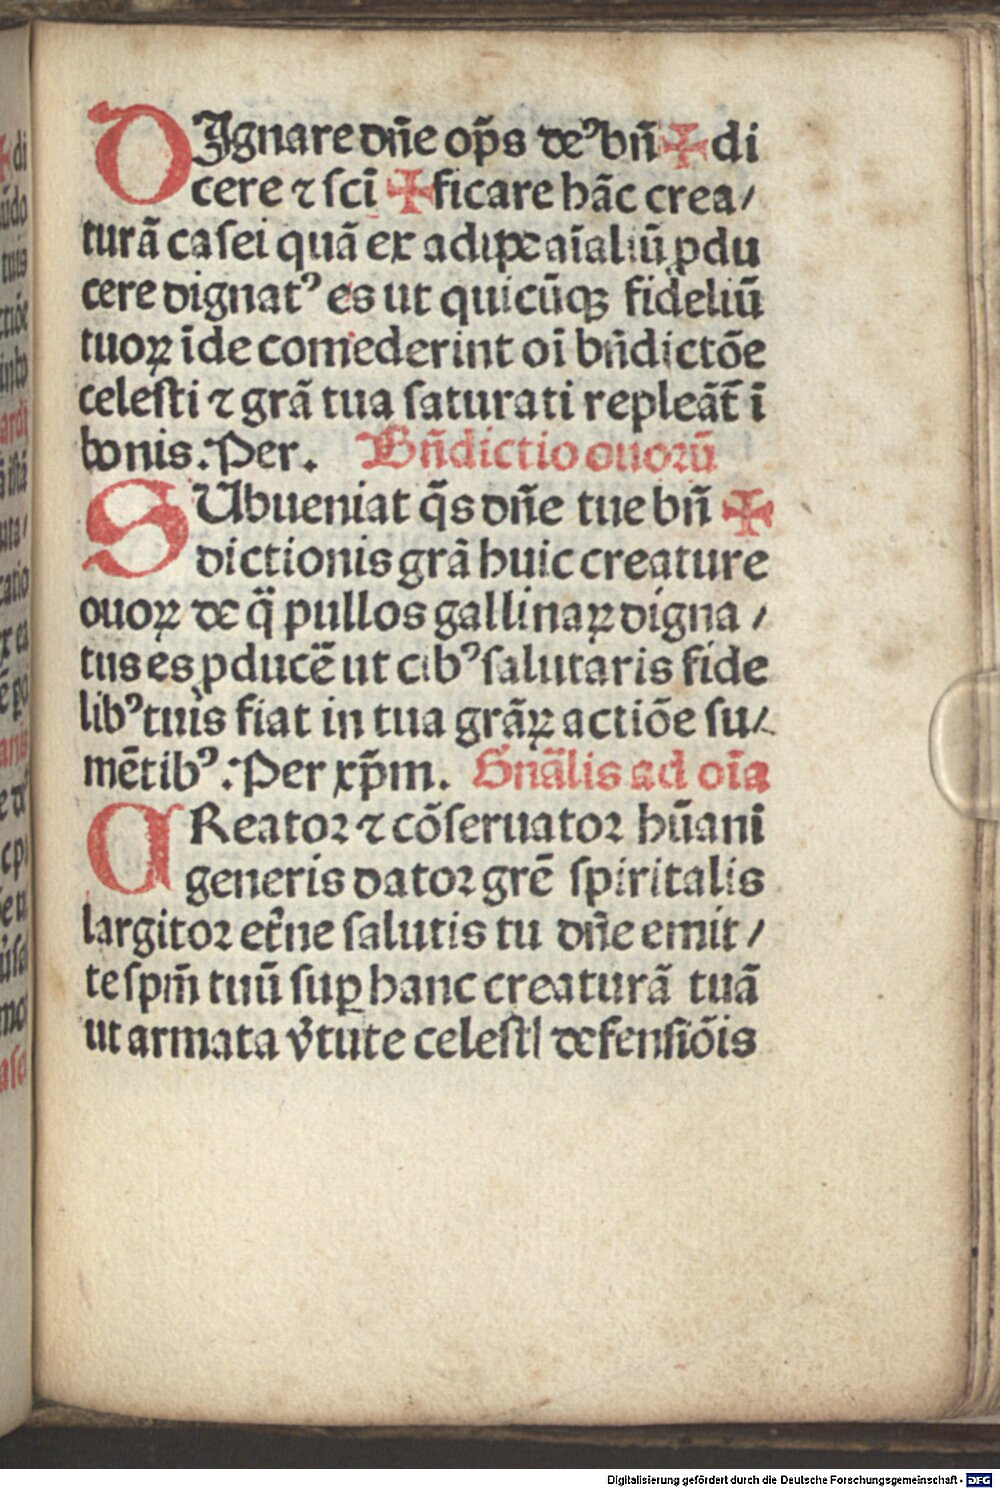 DIgnare dñe op̄s deꝰ bñ ✠ di
cere ⁊ ſcī ✠ ficare hāc crea/
turā caſei quā ex adipe aīaliū ꝓdu
cere dignatꝰ es ut quicūqꝫ fideliū
tuoꝝ īde comederint oī bñdictōe
celeſti ⁊ grā tua ſaturati repleāt̄ ī
bonis. Per. Bñdictio ouoꝛū
SUbueniat q̄s dñe tue bñ ✠
dictionis grā huic creature
ouoꝝ de q̄ pullos gallinaꝝ digna /
tus es ꝓducē ut cibꝰ ſalutaris fide
libꝰ tuis fiat in tua grāꝝ actiōe ſu/
mētibꝰ. Per xp̄m. Gñalis ad oīa
CReatoꝛ ⁊ cōſeruatoꝛ hūani
generis datoꝛ grē ſpiritalis
largitoꝛ et̄ne ſalutis tu dñe emit/
te ſpm̄ tuū ſuꝑ hanc creaturā tuā
ut armata v̄tute celeſti defenſiōis
di
Digitalisierung gefördert durch die Deutsche Forschungsgemeinschaft - DFG